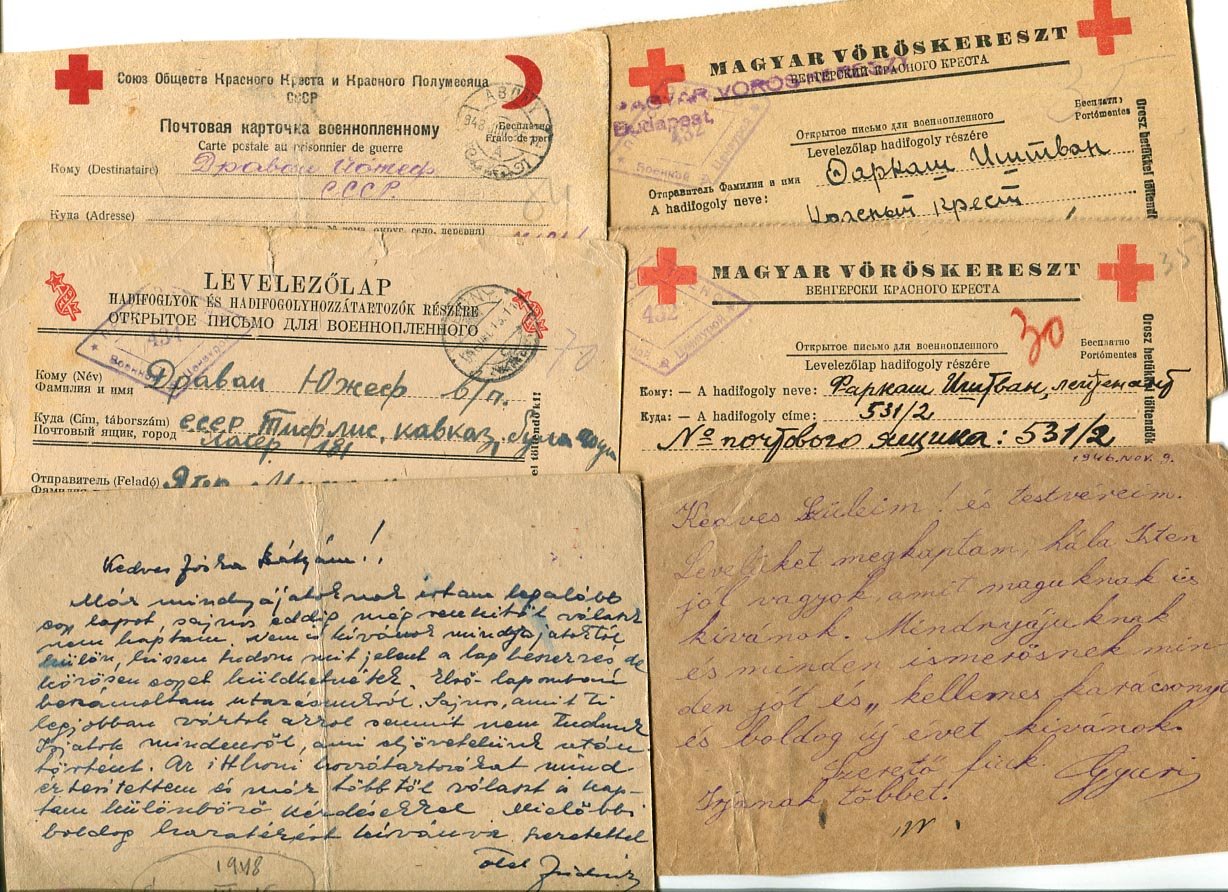 Союз Обществ Красного Креста и Красного Полумесяца
СССР
Почтовая карточка военнопленному
Carte postale au prisonnier de guerre
Бесплатно
Franc de port
Кому (Destinataire) Драваи Иожеф
СССР.
Куда (Adresse)
MAGYAR VÖRÖSKERESZT
ВЕНГЕРСКИЙ КРАСНОГО КРЕСТА
MAGYAR VÖRÖSKERESZT
Budapest,
432
Бесплатно
Portómentes
Открытое письмо для военнопленного
Levelezőlap hadifogoly részére
Отправитель Фамилия и имя
A hadifogoly neve:
Фаркаш Иштван
Красный крест
Orosz betűkkel töltendő
LEVELEZŐLAP
HADIFOGLYOK ÉS HADIFOGOLYHOZZÁTARTOZÓK RÉSZÉRE
ОТКРЫТОЕ ПИСЬМО ДЛЯ ВОЕННОПЛЕННОГО
437
70
Кому (Név)
Фамилия и имя
Драваи Южеф в/п.
Куда (Cím, táborszám)
Почтовый ящик, город
СССР Тифлис, кавказ,
Лагер 181
Отправитель (Feladó)
MAGYAR VÖRÖSKERESZT
ВЕНГЕРСКИ КРАСНОГО КРЕСТА
35
432
30
Открытое письмо для военнопленного
Levelezőlap hadifogoly részére
Бесплатно
Portómentes
Кому: — A hadifogoly neve: Фаркаш Иштван, лейтенант
Куда: — A hadifogoly címe: 531/2
№ почтового ящика: 531/2
Orosz betűkkel töltendők
Kedves Jóska Bátyám!
Már mindnyájatoknak írtam legalább
egy lapot, sajnos eddig még senkitől választ
nem kaptam. Nem is kívánok mindnyájatoktól
külön, hiszen tudom mit jelent a lap beszerzés de
közösen egyet küldhetnétek. Első lapomban
beszámoltam utazásunkról. Sajnos, amit Ti
legjobban vártok arról semmit nem tudunk
Írjatok mindenről, ami eljövetelünk után
történt. Az itthoni hozzátartozókat mind
értesítettem és már többtől választ is kap-
tam különböző kérdésekkel. Mielőbbi
boldog hazatérést kívánva szeretettel
ölel
1948
1946. nov. 9.
Kedves Szüleim! és testvéreim.
Leveliket megkaptam, hála Isten
jól vagyok, amit maguknak is
kivánok. Mindnyájuknak
és minden ismerősnek min
den jót és „kellemes karacsonyi
és boldog új evet kivánok.
Szerető fiuk Gyuri
Irjanak többet!